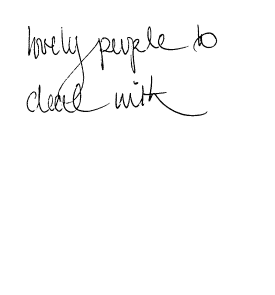 lovely people to
deal with